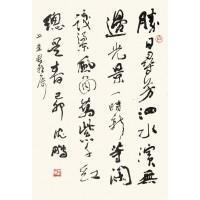 勝日尋芳泗水濱無
邊光景一時新等閑
識得東風面萬紫千紅
總是春 己卯 沈鵬